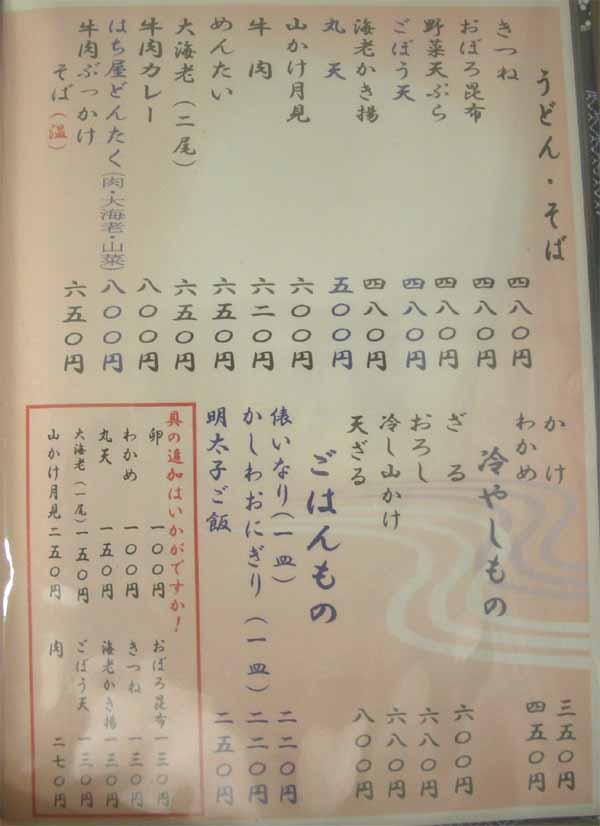 うどん・そば
かけ 三五〇円
わかめ 四五〇円
きつね 四八〇円
おぼろ昆布 四八〇円
野菜天ぷら 四八〇円
ごぼう天 四八〇円
海老かき揚 四八〇円
丸天 五〇〇円
山かけ月見 六〇〇円
牛肉 六二〇円
めんたい 六五〇円
大海老(二尾) 六五〇円
牛肉カレー 八〇〇円
はち屋どんたく(肉・大海老・山菜) 八〇〇円
牛肉ぶっかけ
そば(温) 六五〇円
冷やしもの
ざる 六〇〇円
おろし 六八〇円
冷し山かけ 六八〇円
天ざる 八〇〇円
ごはんもの
俵いなり(一皿) 二二〇円
かしわおにぎり(一皿) 二二〇円
明太子ご飯 二五〇円
具の追加はいかがですか！
卵 一〇〇円
わかめ 一〇〇円
丸天 一五〇円
大海老(一尾) 一五〇円
山かけ月見 二五〇円
おぼろ昆布 一三〇円
きつね 一三〇円
海老かき揚 一三〇円
ごぼう天 一三〇円
肉 二七〇円